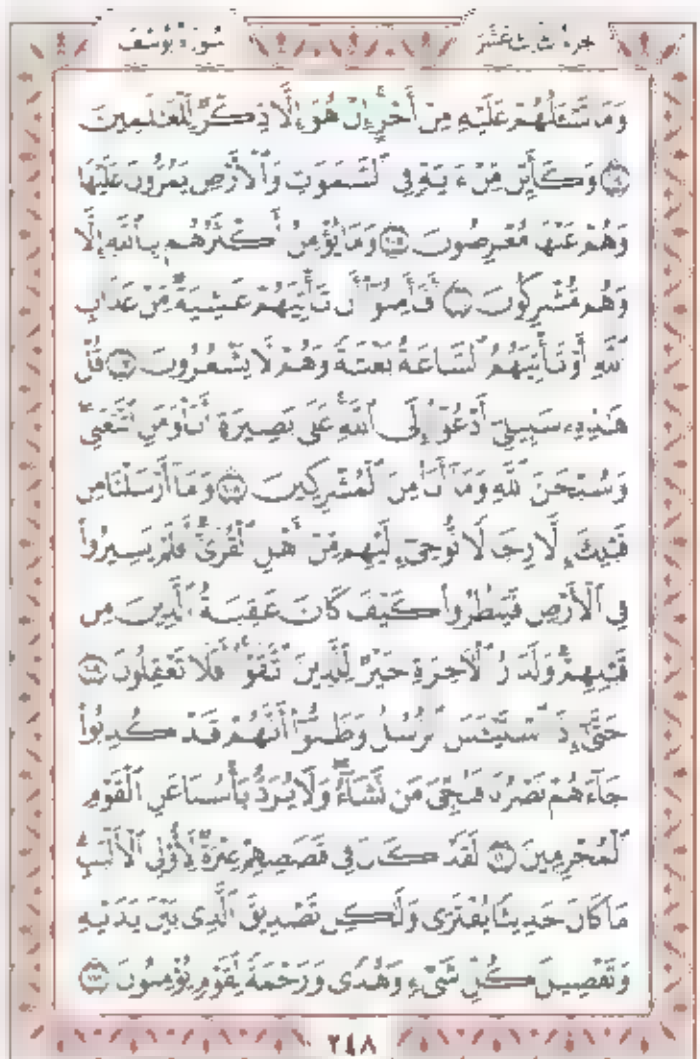 سُورَةُ يُوسُفَ
الجزء الثالث عشر
وَمَا تَسْـَٔلُهُمْ عَلَيْهِ مِنْ أَجْرٍ ۚ إِنْ هُوَ إِلَّا ذِكْرٌ لِّلْعَـٰلَمِينَ
١٠٤ وَكَأَيِّن مِّنْ ءَايَةٍ فِى ٱلسَّمَـٰوَٰتِ وَٱلْأَرْضِ يَمُرُّونَ عَلَيْهَا
وَهُمْ عَنْهَا مُعْرِضُونَ ١٠٥ وَمَا يُؤْمِنُ أَكْثَرُهُم بِٱللَّهِ إِلَّا
وَهُم مُّشْرِكُونَ ١٠٦ أَفَأَمِنُوٓا۟ أَن تَأْتِيَهُمْ غَـٰشِيَةٌ مِّنْ عَذَابِ
ٱللَّهِ أَوْ تَأْتِيَهُمُ ٱلسَّاعَةُ بَغْتَةً وَهُمْ لَا يَشْعُرُونَ ١٠٧ قُلْ
هَـٰذِهِۦ سَبِيلِىٓ أَدْعُوٓا۟ إِلَى ٱللَّهِ ۚ عَلَىٰ بَصِيرَةٍ أَنَا۠ وَمَنِ ٱتَّبَعَنِى ۖ
وَسُبْحَـٰنَ ٱللَّهِ وَمَآ أَنَا۠ مِنَ ٱلْمُشْرِكِينَ ١٠٨ وَمَآ أَرْسَلْنَا مِن
قَبْلِكَ إِلَّا رِجَالًا نُّوحِىٓ إِلَيْهِم مِّنْ أَهْلِ ٱلْقُرَىٰٓ ۗ أَفَلَمْ يَسِيرُوا۟
فِى ٱلْأَرْضِ فَيَنظُرُوا۟ كَيْفَ كَانَ عَـٰقِبَةُ ٱلَّذِينَ مِن
قَبْلِهِمْ ۗ وَلَدَارُ ٱلْـَٔاخِرَةِ خَيْرٌ لِّلَّذِينَ ٱتَّقَوْا۟ ۗ أَفَلَا تَعْقِلُونَ ١٠٩
حَتَّىٰٓ إِذَا ٱسْتَيْـَٔسَ ٱلرُّسُلُ وَظَنُّوٓا۟ أَنَّهُمْ قَدْ كُذِبُوا۟
جَآءَهُمْ نَصْرُنَا فَنُجِّىَ مَن نَّشَآءُ ۖ وَلَا يُرَدُّ بَأْسُنَا عَنِ ٱلْقَوْمِ
ٱلْمُجْرِمِينَ ١١٠ لَقَدْ كَانَ فِى قَصَصِهِمْ عِبْرَةٌ لِّأُو۟لِى ٱلْأَلْبَـٰبِ ۗ
مَا كَانَ حَدِيثًا يُفْتَرَىٰ وَلَـٰكِن تَصْدِيقَ ٱلَّذِى بَيْنَ يَدَيْهِ
وَتَفْصِيلَ كُلِّ شَىْءٍ وَهُدًى وَرَحْمَةً لِّقَوْمٍ يُؤْمِنُونَ ١١١
٢٤٨